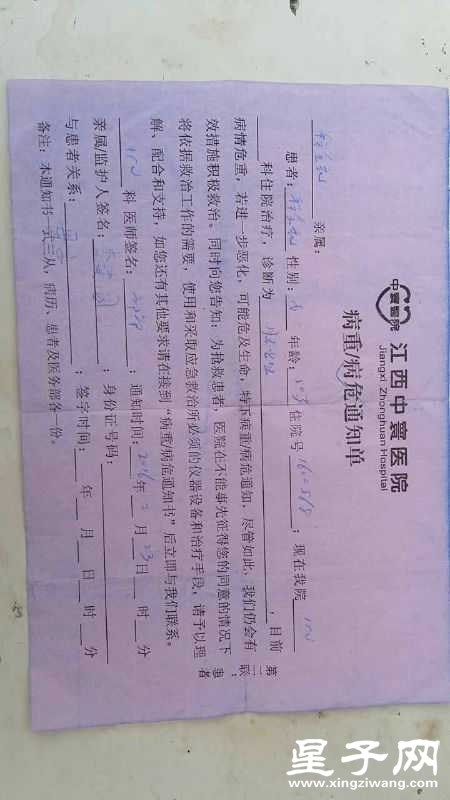 中寰医院
江西中寰医院
Jiangxi Zhonghuan Hospital
病重/病危通知单
亲属：
患者： 性别： 年龄： 住院号 ；现在我院 ICU
科住院治疗，诊断为 ，目前
病情危重，若进一步恶化，可能危及生命，特下病重/病危通知，尽管如此，我们仍会有
效措施积极救治。同时向您告知：为抢救患者，医院在不能事先征得您的同意的情况下
将依据救治工作的需要，使用和采取应急救治所必须的仪器设备和治疗手段，请予以理
解、配合和支持，如您还有其他要求请在接到“病重/病危通知书”后立即与我们联系。
ICU 科医师签名： ；通知时间：2016年2月23日 时 分
亲属监护人签名： ；身份证号码：
与患者关系： ；签字时间： 年 月 日 时 分
备注：本通知书一式三从，病历、患者及医务部各一份。
第二联：患者
星子网
www.xingziwang.com